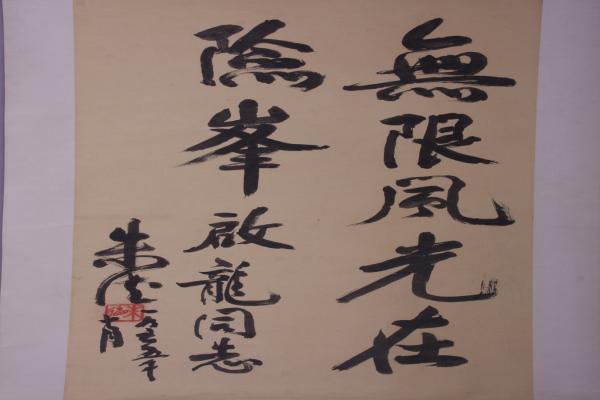 無限風光在
險峯 啟龍同志
朱德
一九七五年